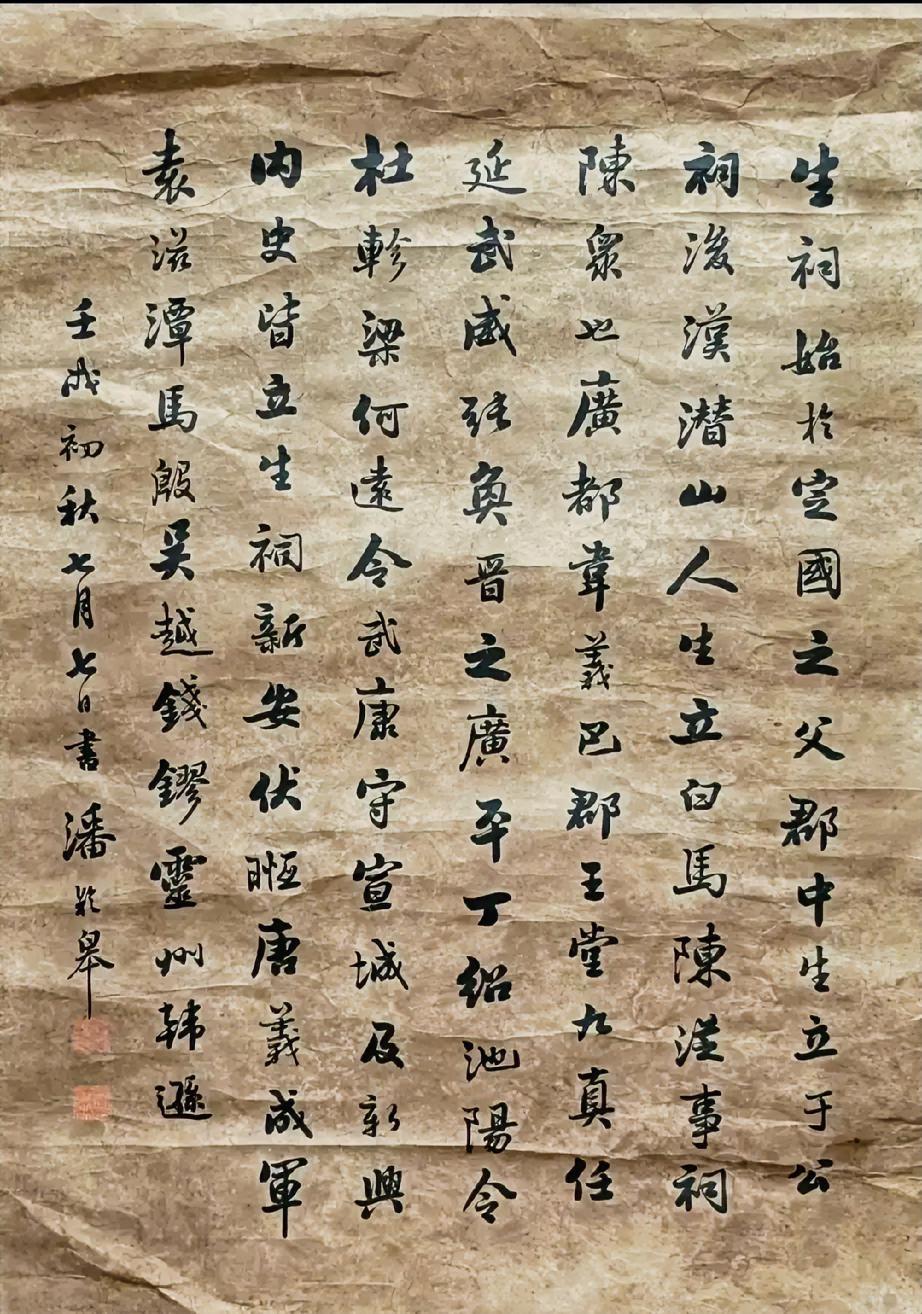 生祠始於定國之父郡中生立于公
祠後漢潛山人生立白馬陳從事祠
陳衆也廣都韋義巴郡王堂九真任
延武威張奐晉之廣平丁紹池陽令
杜軫梁何遠令武康守宣城及新興
内史皆立生祠新安伏暅唐義成軍
袁滋潭馬殷吴越錢鏐靈州韩遜
壬戌初秋七月七日書潘齡皋